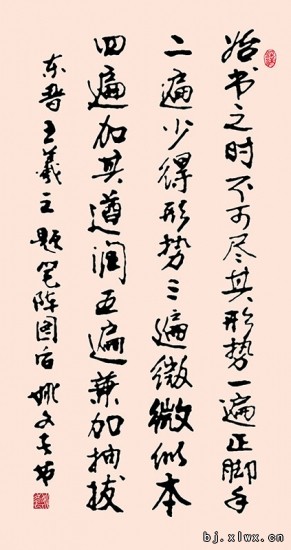 始书之时不可尽其形势一遍正脚手
二遍少得形势三遍微微似本
四遍加其遒润五遍兼加抽拔
东晋王羲之题笔阵图后 姚文奎书
bj.xlwx.cn